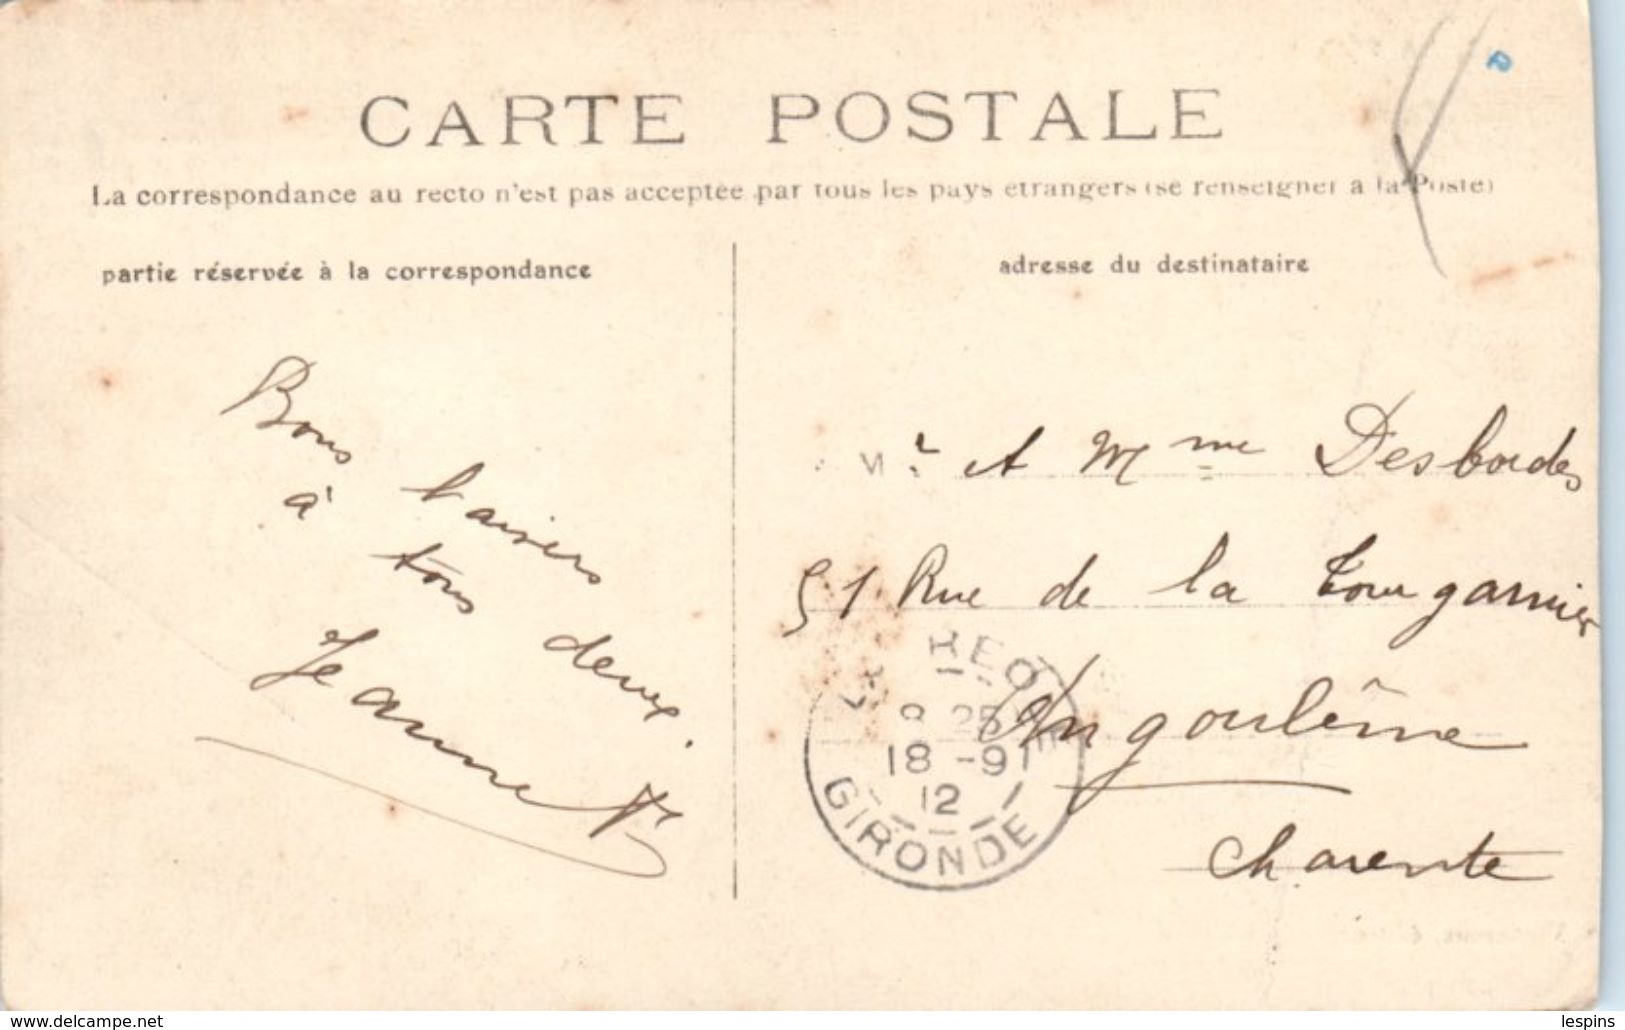 CARTE POSTALE
La correspondance au recto n'est pas acceptée par tous les pays étrangers (se renseigner à la Poste)
partie réservée à la correspondance
adresse du destinataire
Bons baisers
à tous deux.
Jeanne
A Mme Desbordes
51 Rue de la Tour garnier
Angoulême
Charente
REO
25
18 -9
12
GIRONDE
www.delcampe.net
lespins